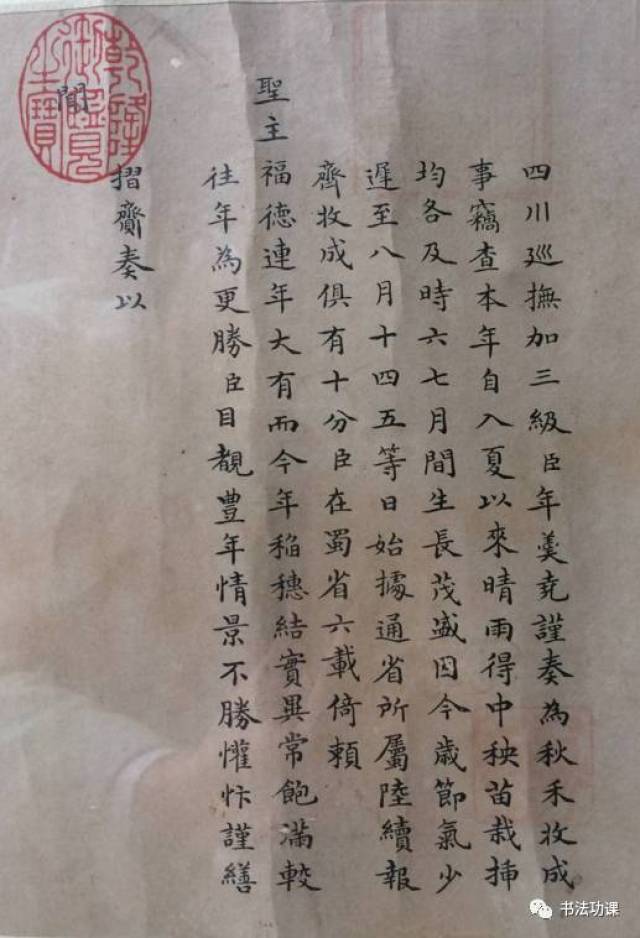 四川廵撫加三級臣年羹尭謹奏為秋禾收成
事竊查本年自入夏以來晴雨得中秧苗栽挿
均各及時六七月間生長茂盛因今歲節氣少
遲至八月十四五等日始據通省所屬陸續報
齊收成俱有十分臣在蜀省六載倚頼
聖主
福德連年大有而今年稻穗結實異常飽滿較
往年為更勝臣目覩豊年情景不勝懽忭謹繕
摺齎奏以
聞
乾隆御覽之寶
书法功课